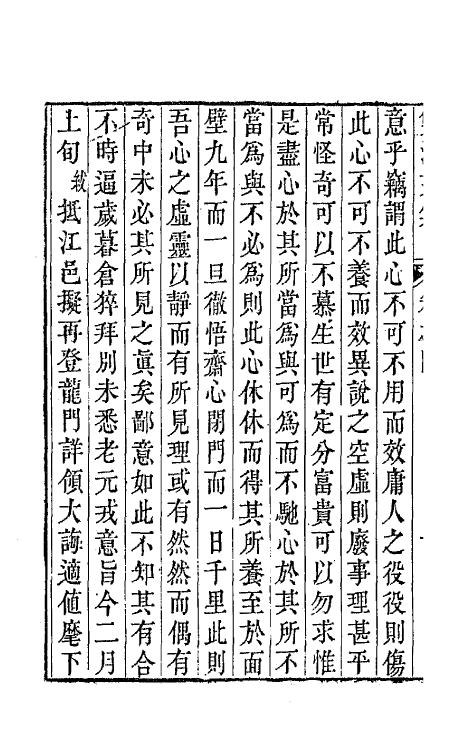 意乎竊謂此心不可不用而效庸人之役役則傷
此心不可不養而效異說之空虛則廢事理甚平
常怪奇可以不慕生世有定分富貴可以勿求惟
是盡心於其所當爲與可爲而不馳心於其所不
當爲與不必爲則此心休休而得其所養至於面
壁九年而一旦徹悟齋心閉門而一日千里此則
吾心之虛靈以靜而有所見理或有然然而偶有
奇中未必其所見之眞矣鄙意如此不知其有合
不時逼歲暮倉猝拜別未悉老元戎意旨今二月
上旬 抵江邑擬再登龍門詳領大誨適值麾下